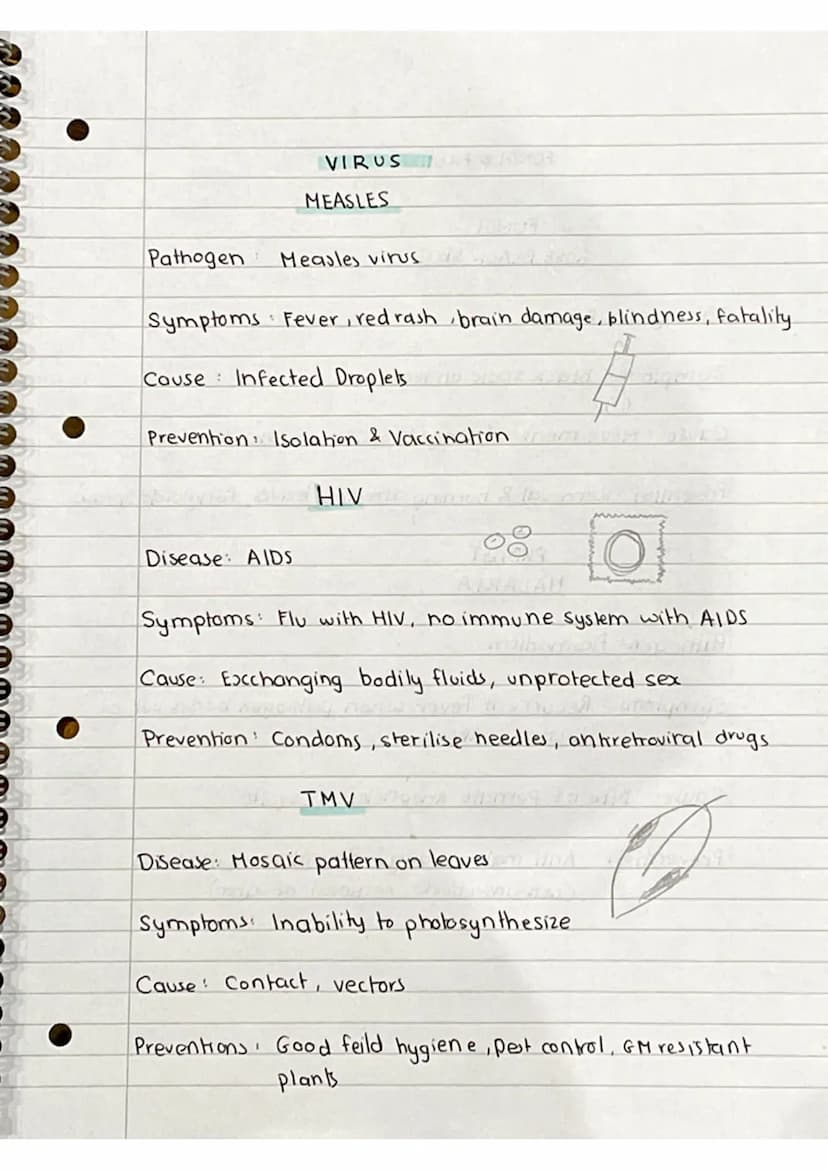 VIRUS
MEASLES
Pathogen : Measles virus
Symptoms : Fever, red rash, brain damage, blindness, fatality
Cause : Infected Droplets
Prevention : Isolation & Vaccination
HIV
Disease: AIDS
Symptoms: Flu with HIV, no immune system with AIDS
Cause: Excchanging bodily fluids, unprotected sex
Prevention: Condoms, sterilise needles, antiretroviral drugs
TMV
Disease: Mosaic pattern on leaves
Symptoms: Inability to photosynthesize
Cause: Contact, vectors
Preventions: Good feild hygiene, pest control, GM resistant
plants